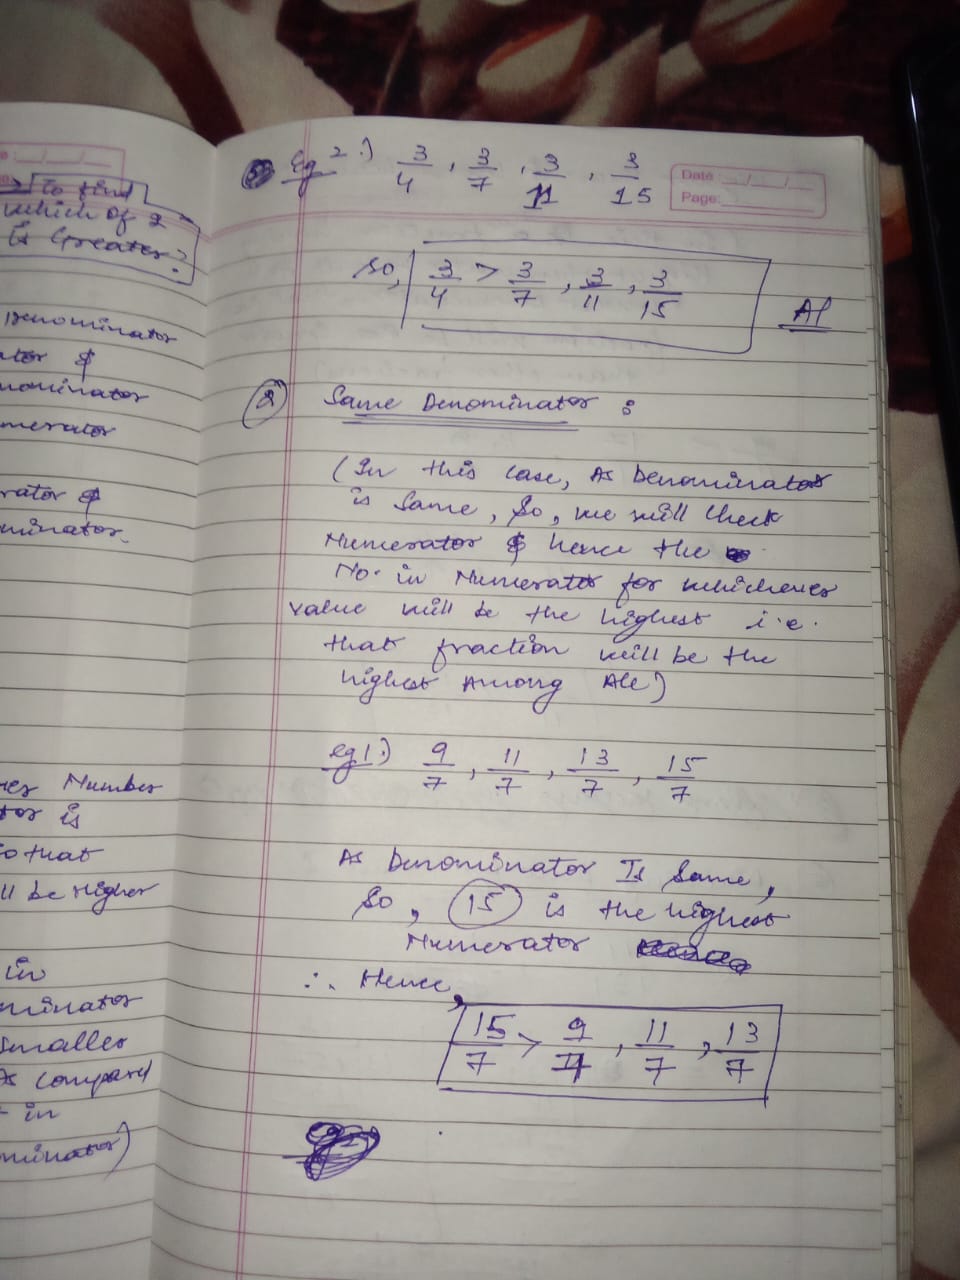 To find
which of 2
is Greater?
Denominator
ator &
nominator
merator
rator &
minator.
Number
tor is
so that
ll be Higher
in
minator
Smaller
As compared
in
minator)
Eg 2.) 3/4 , 3/7 , 3/11 , 3/15
Date : __/__/__
Page:
So, 3/4 > 3/7 , 3/11 , 3/15
② Same Denominator :
(In this case, As Denominator
is Same, So, we will check
Numerator & hence the
No. in Numerator for whichever
value will be the highest i.e.
that fraction will be the
highest Among All)
eg 1.) 9/7 , 11/7 , 13/7 , 15/7
As Denominator Is Same,
So, 15 is the highest
Numerator
∴ Hence,
15/7 > 9/7 , 11/7 , 13/7